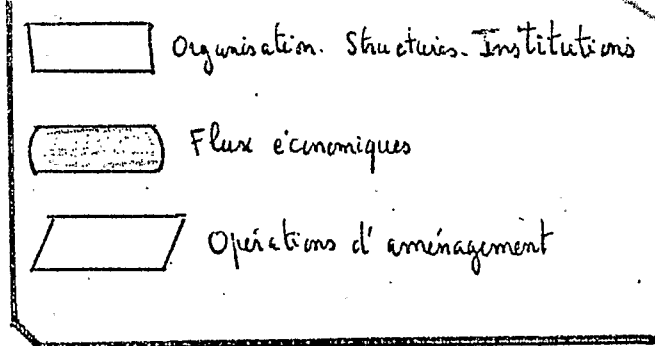 Organisation. Structures. Institutions
Flux économiques
Opérations d'aménagement